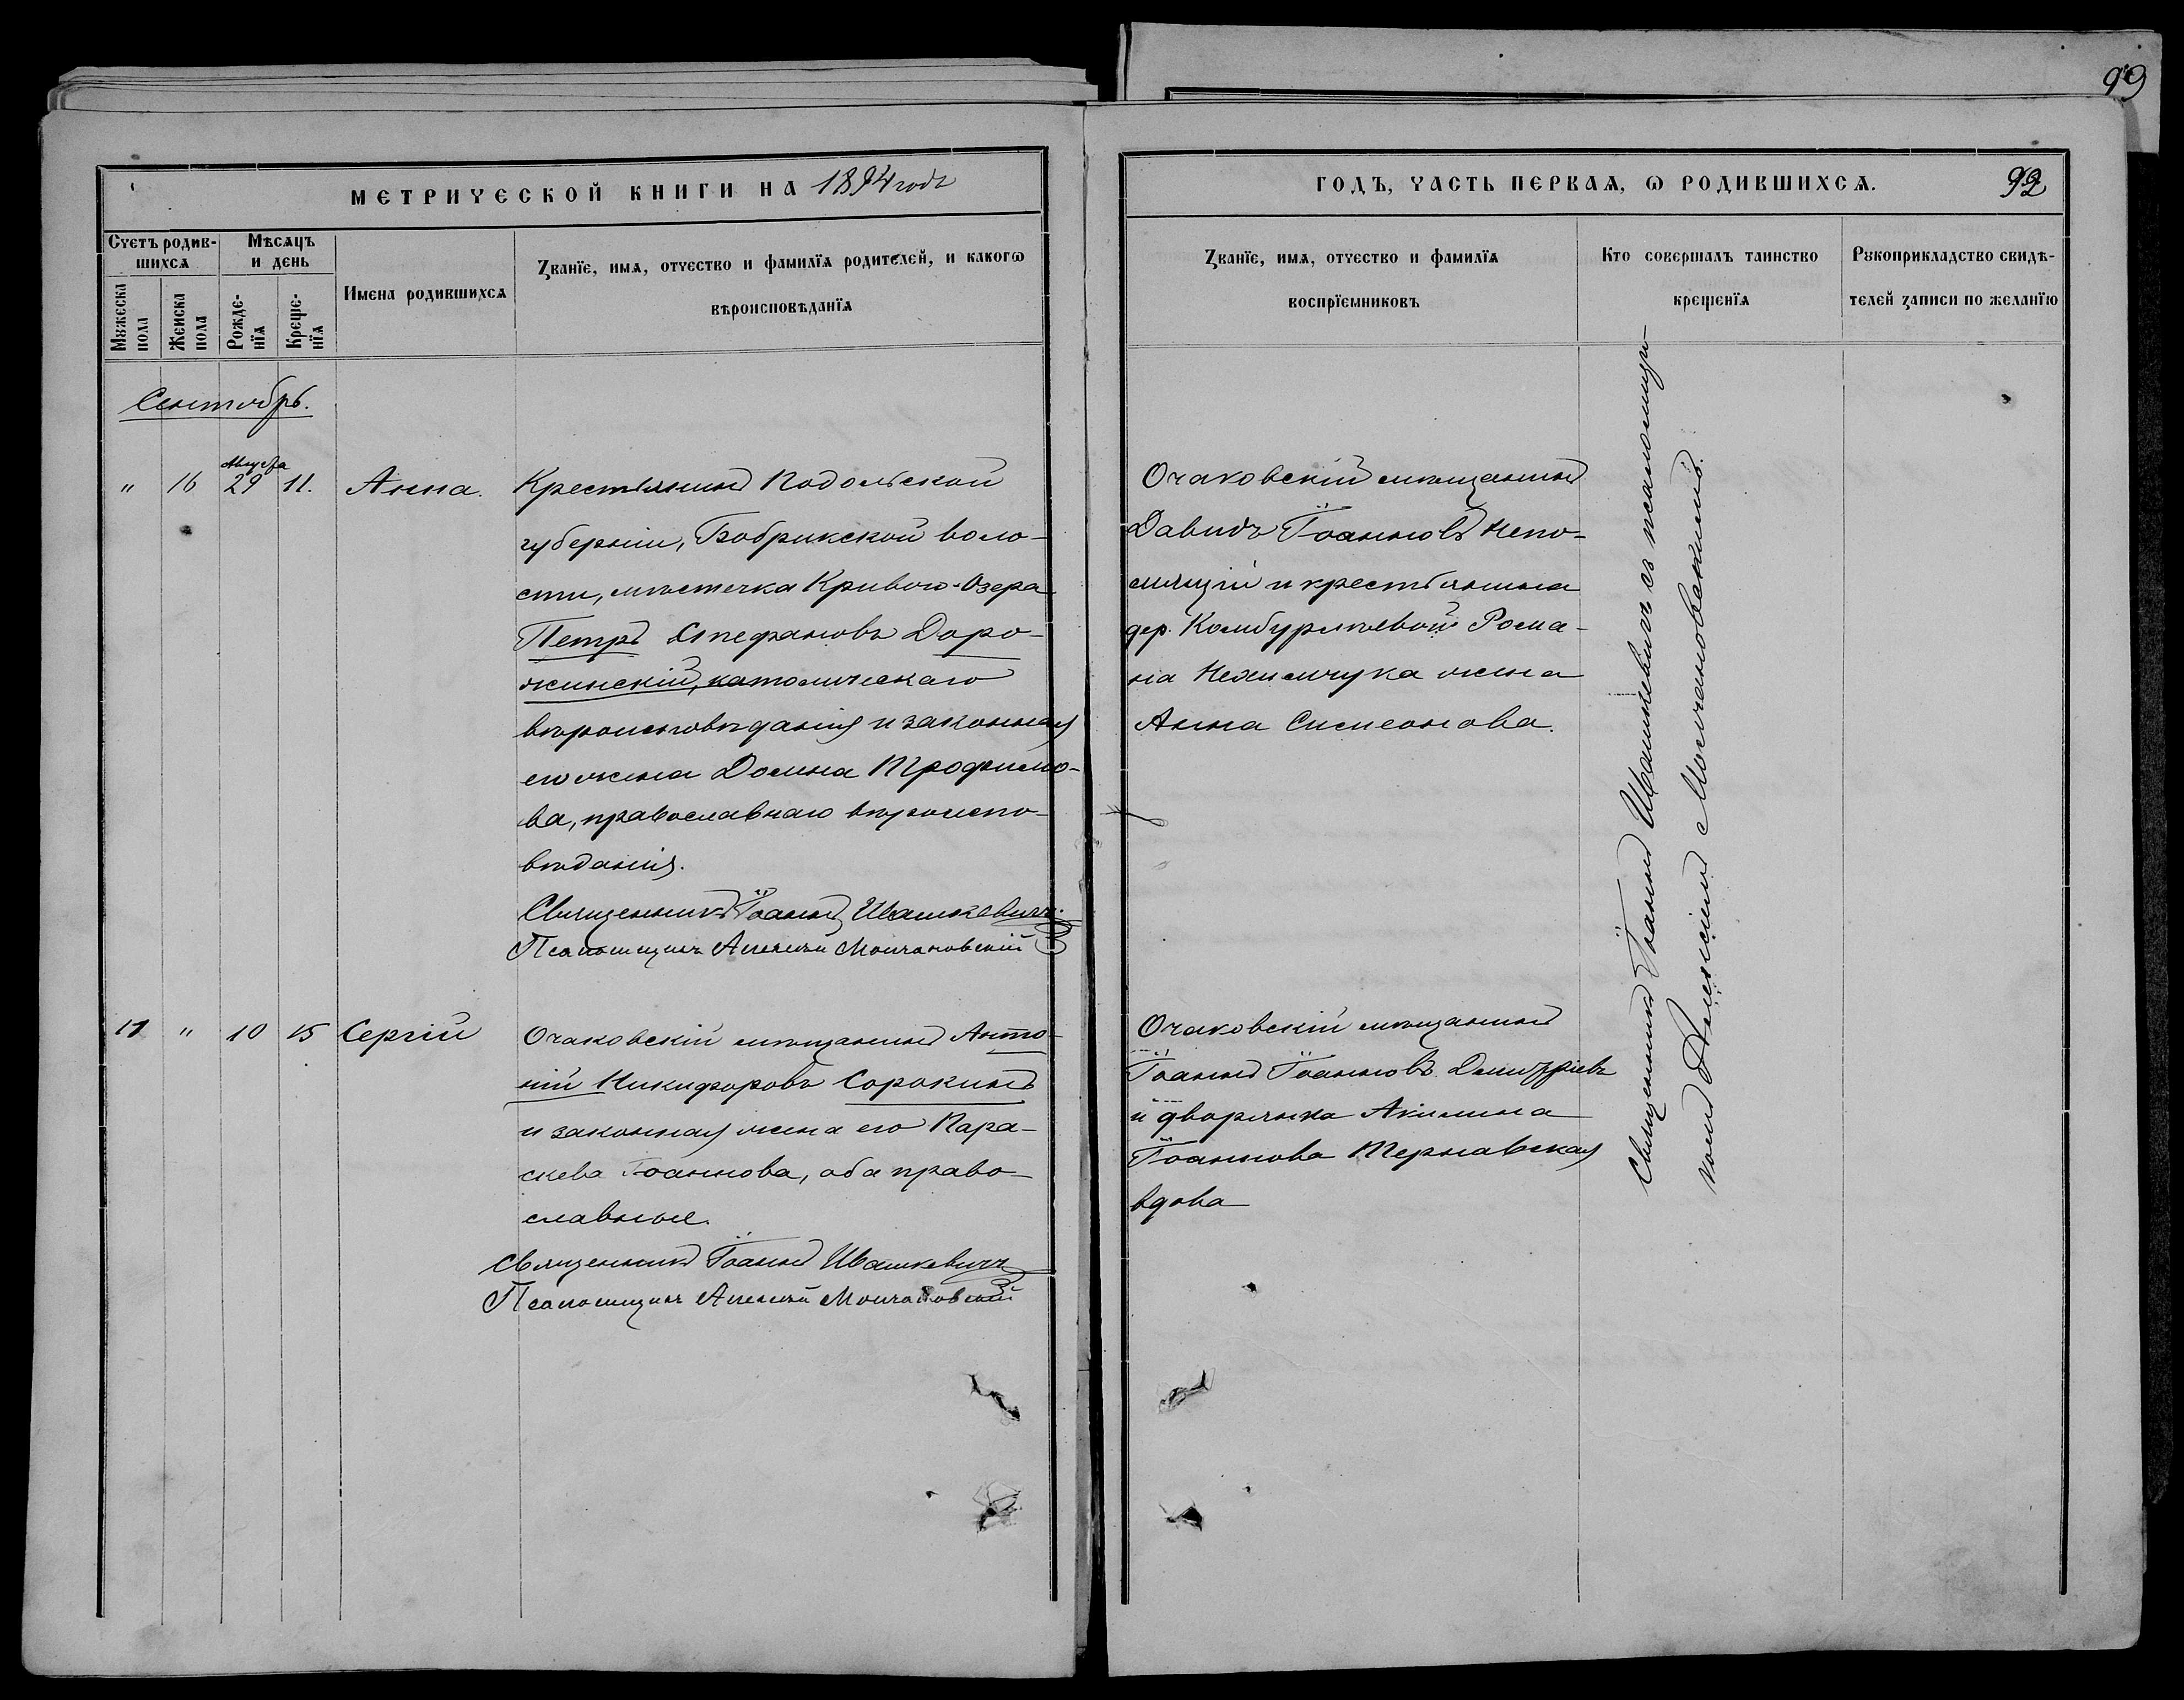 99
МЕТРИЧЕСКОЙ КНИГИ НА 1894 годъ
ГОДЪ, ЧАСТЬ ПЕРВАЯ, Ѡ РОДИВШИХСЯ.
92
Счетъ родив-
шихся
Мужеска
пола
Женска
пола
Мѣсяцъ
и день
Рожде-
нїя
Креще-
нїя
Имена родившихся
Званїе, имя, отчество и фамилїя родителей, и какогѡ
вѣроисповѣданїя
Званїе, имя, отчество и фамилїя
воспрїемниковъ
Кто совершалъ таинство
крещенїя
Рукоприкладство свидѣ-
телей записи по желанїю
Сентябрь.
Августа
" 16 29 11. Анна.
Крестьянинъ Подольской
губерніи, Бобрикской воло-
сти, мѣстечка Кривого-Озера
Петръ Стефановъ Доро-
жинскій, католическаго
вѣроисповѣданія и законная
его жена Домна Трофимо-
ва, православнаго вѣроиспо-
вѣданія.
Священникъ Іоаннъ Ивашкевичъ.
Псаломщикъ Алексѣй Молчановскій
Очаковскій мѣщанинъ
Давидъ Іоанновъ Непо-
мнящій и крестьянина
дер. Камбурліевой Рома-
на жена
Анна Симеонова.
Священникъ Іоаннъ Ивашкевичъ съ псаломщи-
комъ Алексіемъ Молчановскимъ.
17 " 10 15 Сергій
Очаковскій мѣщанинъ Анто-
ній Никифоровъ Сорокинъ
и законная жена его Пара-
скева Іоаннова, оба право-
славные.
Священникъ Іоаннъ Ивашкевичъ
Псаломщикъ Алексѣй Молчановскій
Очаковскій мѣщанинъ
Іоаннъ Іоанновъ Димитріевъ
и дворянка Акилина
Іоаннова Тернавская
вдова